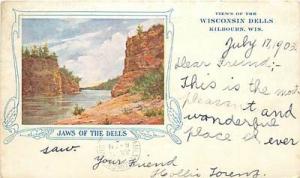 VIEWS OF THE
WISCONSIN DELLS
KILBOURN, WIS.
July 17, 1902
Dear Freind;-
This is the most
pleasent and
wonderful
place I ever
JAWS OF THE DELLS
saw.
Your Friend
Hollis